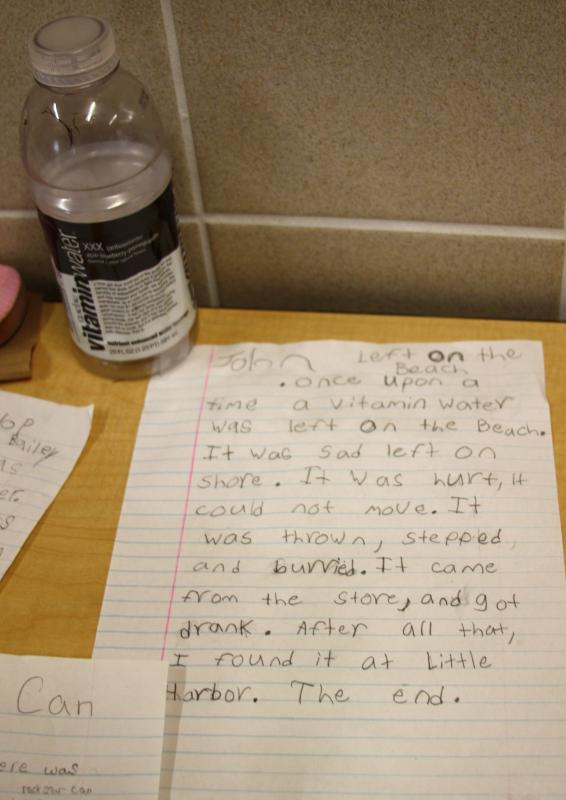 vitaminwater
XXX
nutrient enhanced water beverage
20 FL OZ (1.25 PT) 591 mL
John Left on the
Beach
. once upon a
time a vitamin water
was left on the Beach.
It was sad left on
shore. It was hurt, it
could not move. It
was thrown, stepped,
and burried. It came
from the store, and got
drank. After all that,
I found it at Little
Harbor. The end.
Bailey
Can
ere was
rock star can